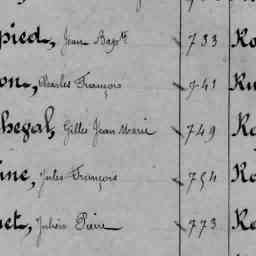 pied, Jean Bapte 733 Ro
on, Charles François 741 Ru
hegal, Gilles Jean Marie 749 Ro
ine, Jules François 754 Ro
uet, Julien Pierre 773 Ro